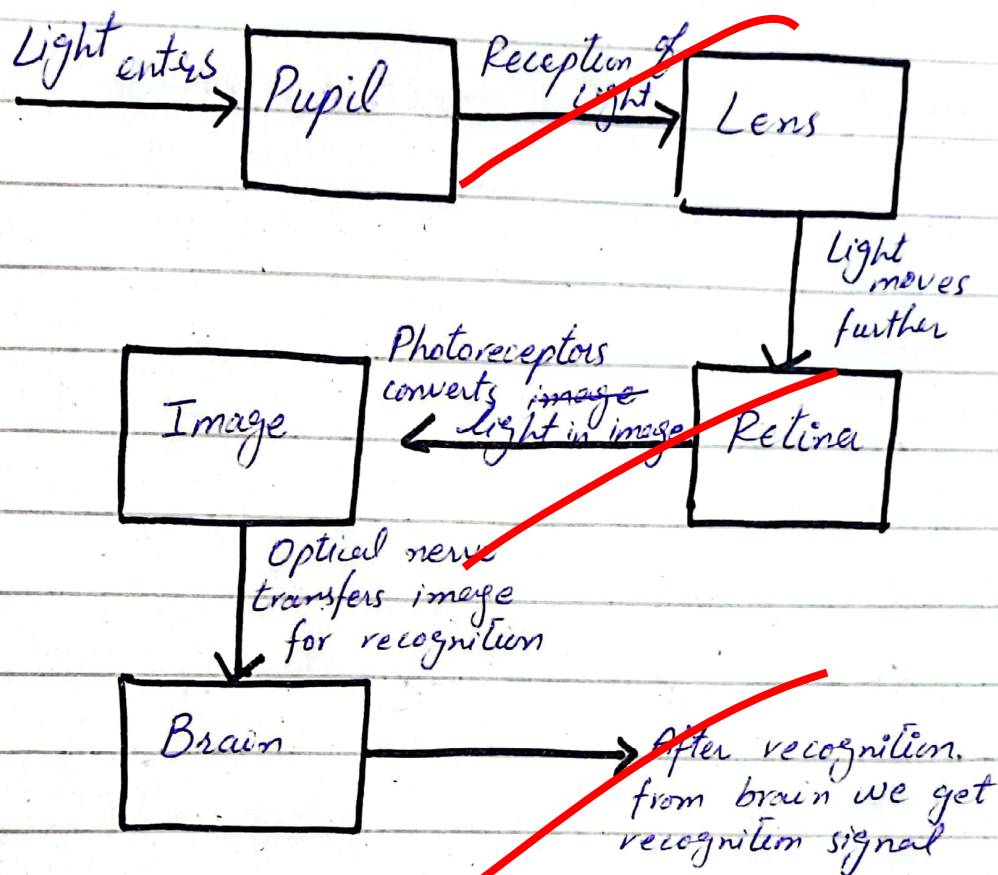 Light enters
Pupil
Reception of
Light
Lens
Light
moves
further
Retina
Photoreceptors
converts image
light in image
Image
Optical nerve
transfers image
for recognition
Brain
After recognition.
from brain we get
recognition signal